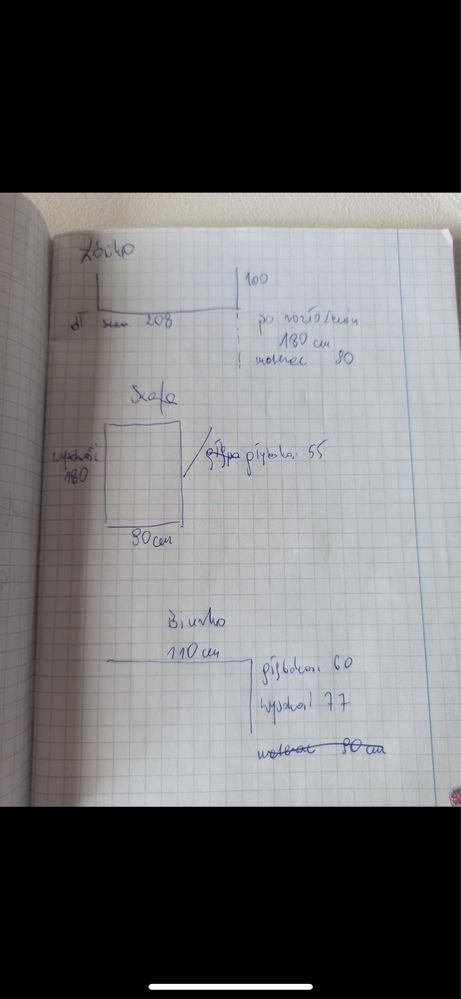 Łóżko
100
dł 208
po rozłożeniu
180 cm
materac 90
Szafa
wysokość
180
głęboko. 55
90 cm
Biurko
110 cm
głęboko. 60
wysokość 77
materac 90 cm